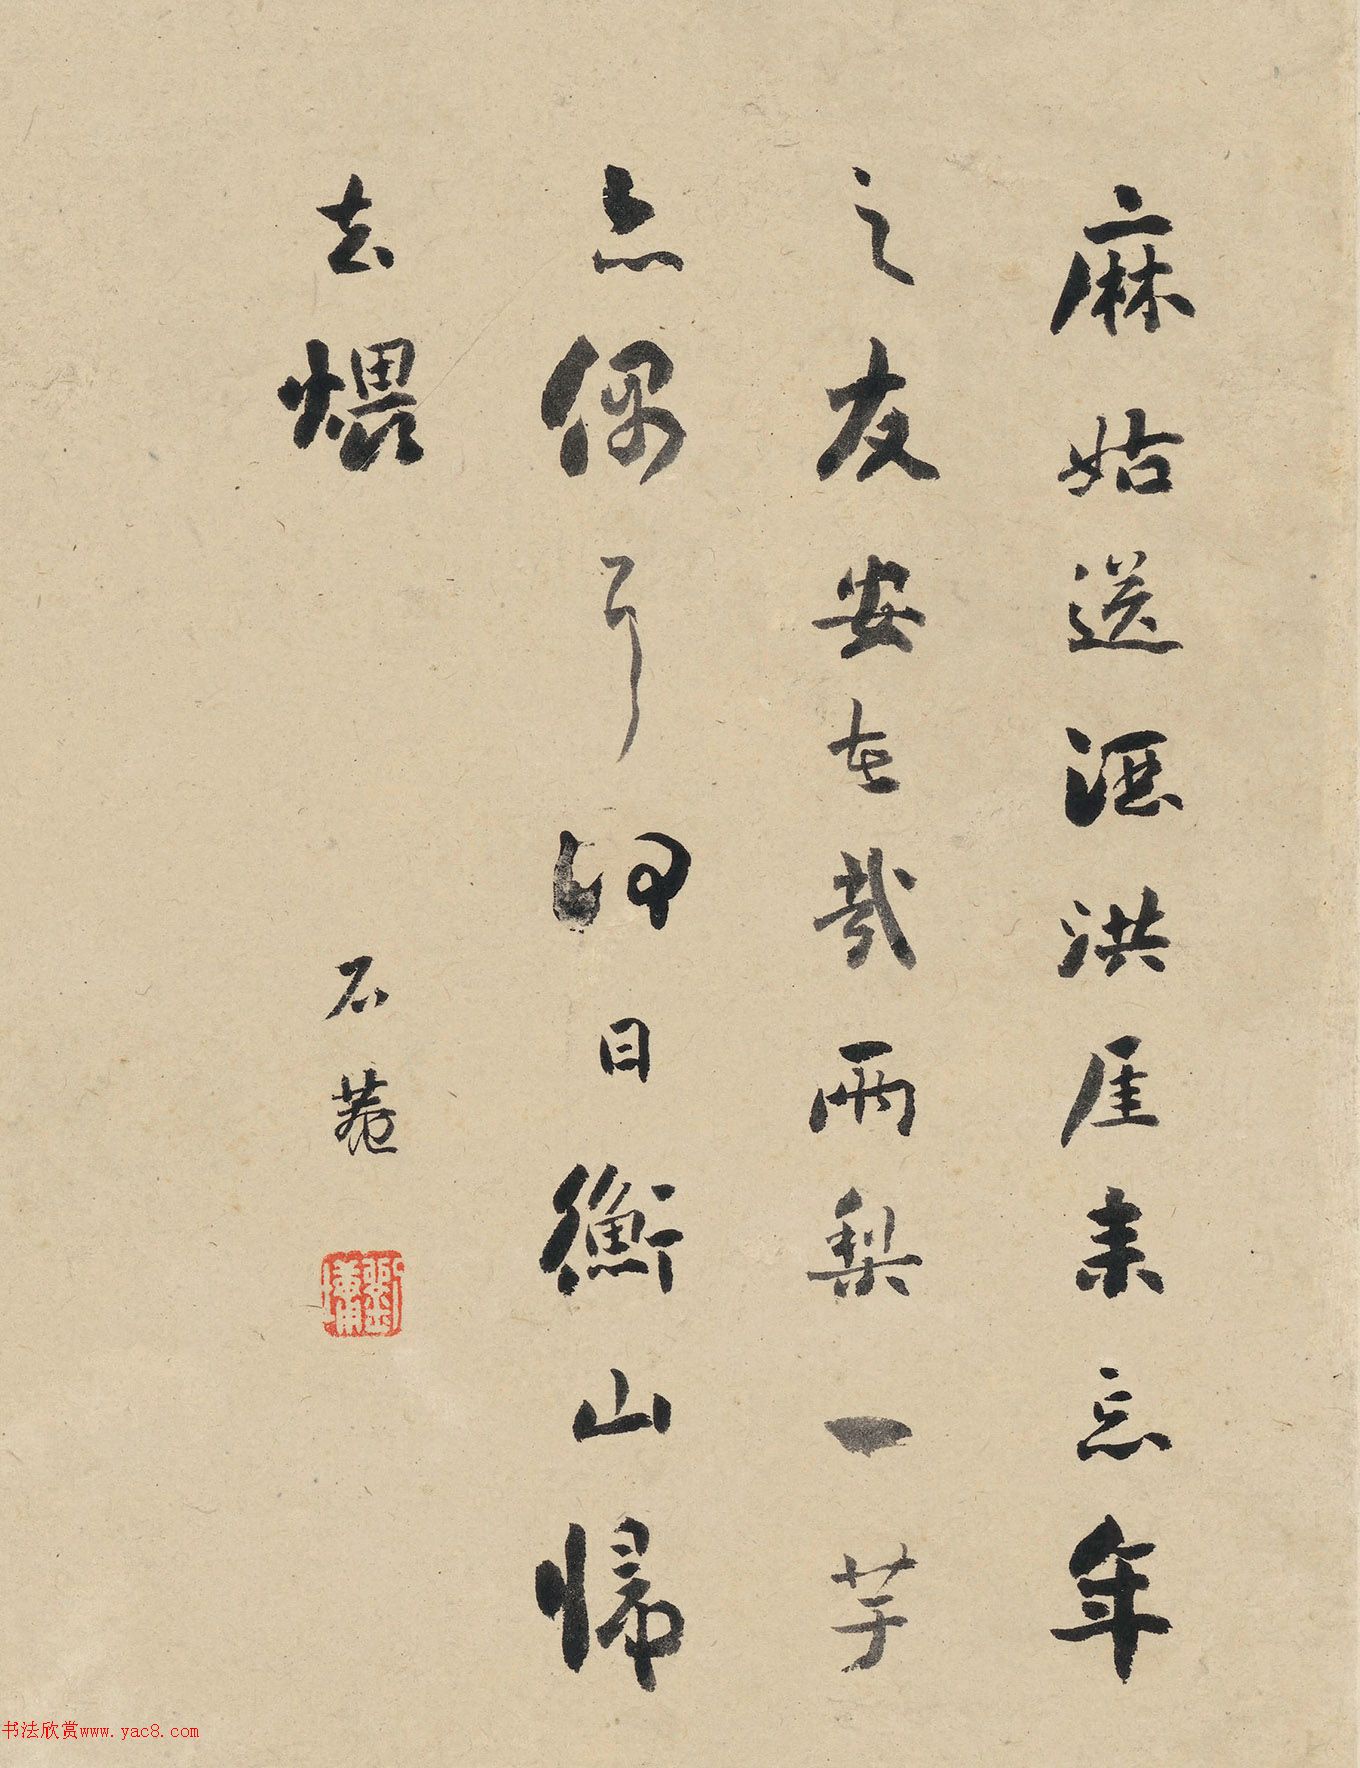 麻姑送酒洪厓来忘年
之友安在哉兩梨一芋
亦偶耳何日衡山歸
去煨
石菴
劉墉
书法欣赏www.yac8.com